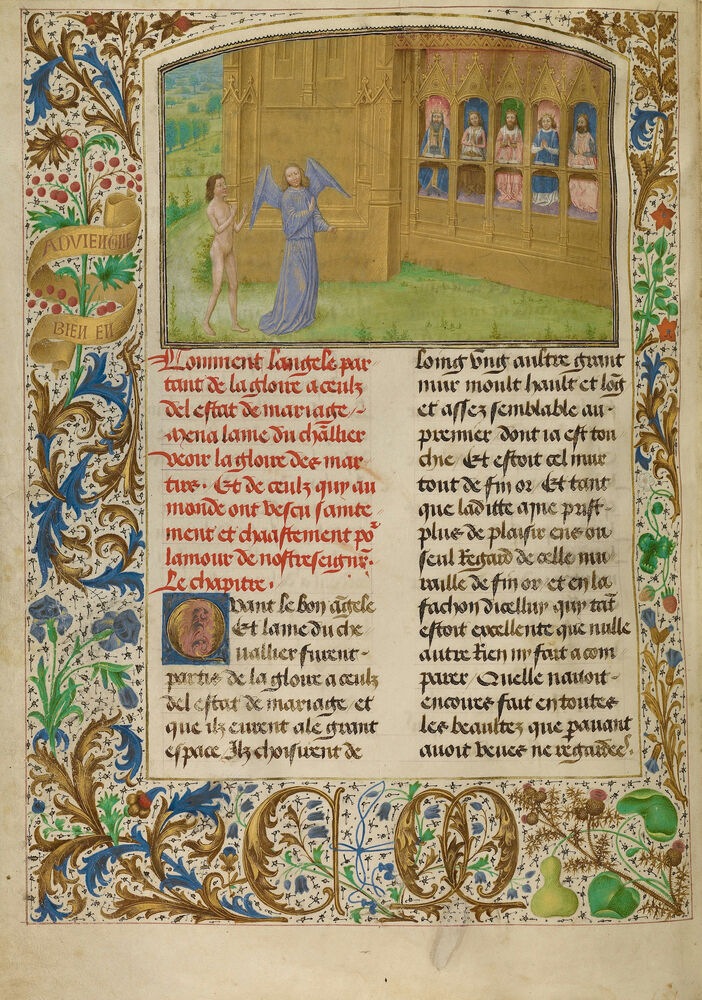 ADVIENGNE
BIEN EN
Comment langele par-
tant de la gloire a ceulz
del estat de mariage /-
Mena lame du chl̅lier
veoir la gloire des mar
tirs · Et de ceulz quy au
monde ont vescu sainte
ment et chaastement po͛
lamour de nostreseign͛r ·
Le chapitre ·
Quant le bon a̅gele
Et lame du che
uallier furent -
partis de la gloire a ceulz
del estat de mariage / et
que ilz eurent ale grant
espace Ilz choisirent de
loing vng aultre grant
mur moult hault et lo̅g
et assez semblable au -
premier dont ia est tou
chie / Et estoit cel mur
tout de fin or / Et tant
que laditte ame prist -
plus de plaisir ens ou
seul Regard de celle mu
raille de fin or / et en la
fachon dicelluy quy ta̅t
estoit excellente que nulle
autre Rien ny fait a com
parer / Quelle nauoit -
encores fait en toutes
les beaultez que pauant
auoit veues ne regardees /
C M